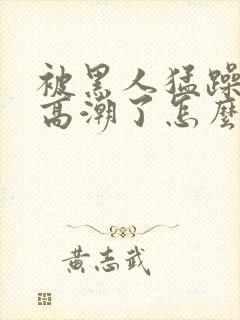 被黑人猛躁
高潮了怎麼
黃志武